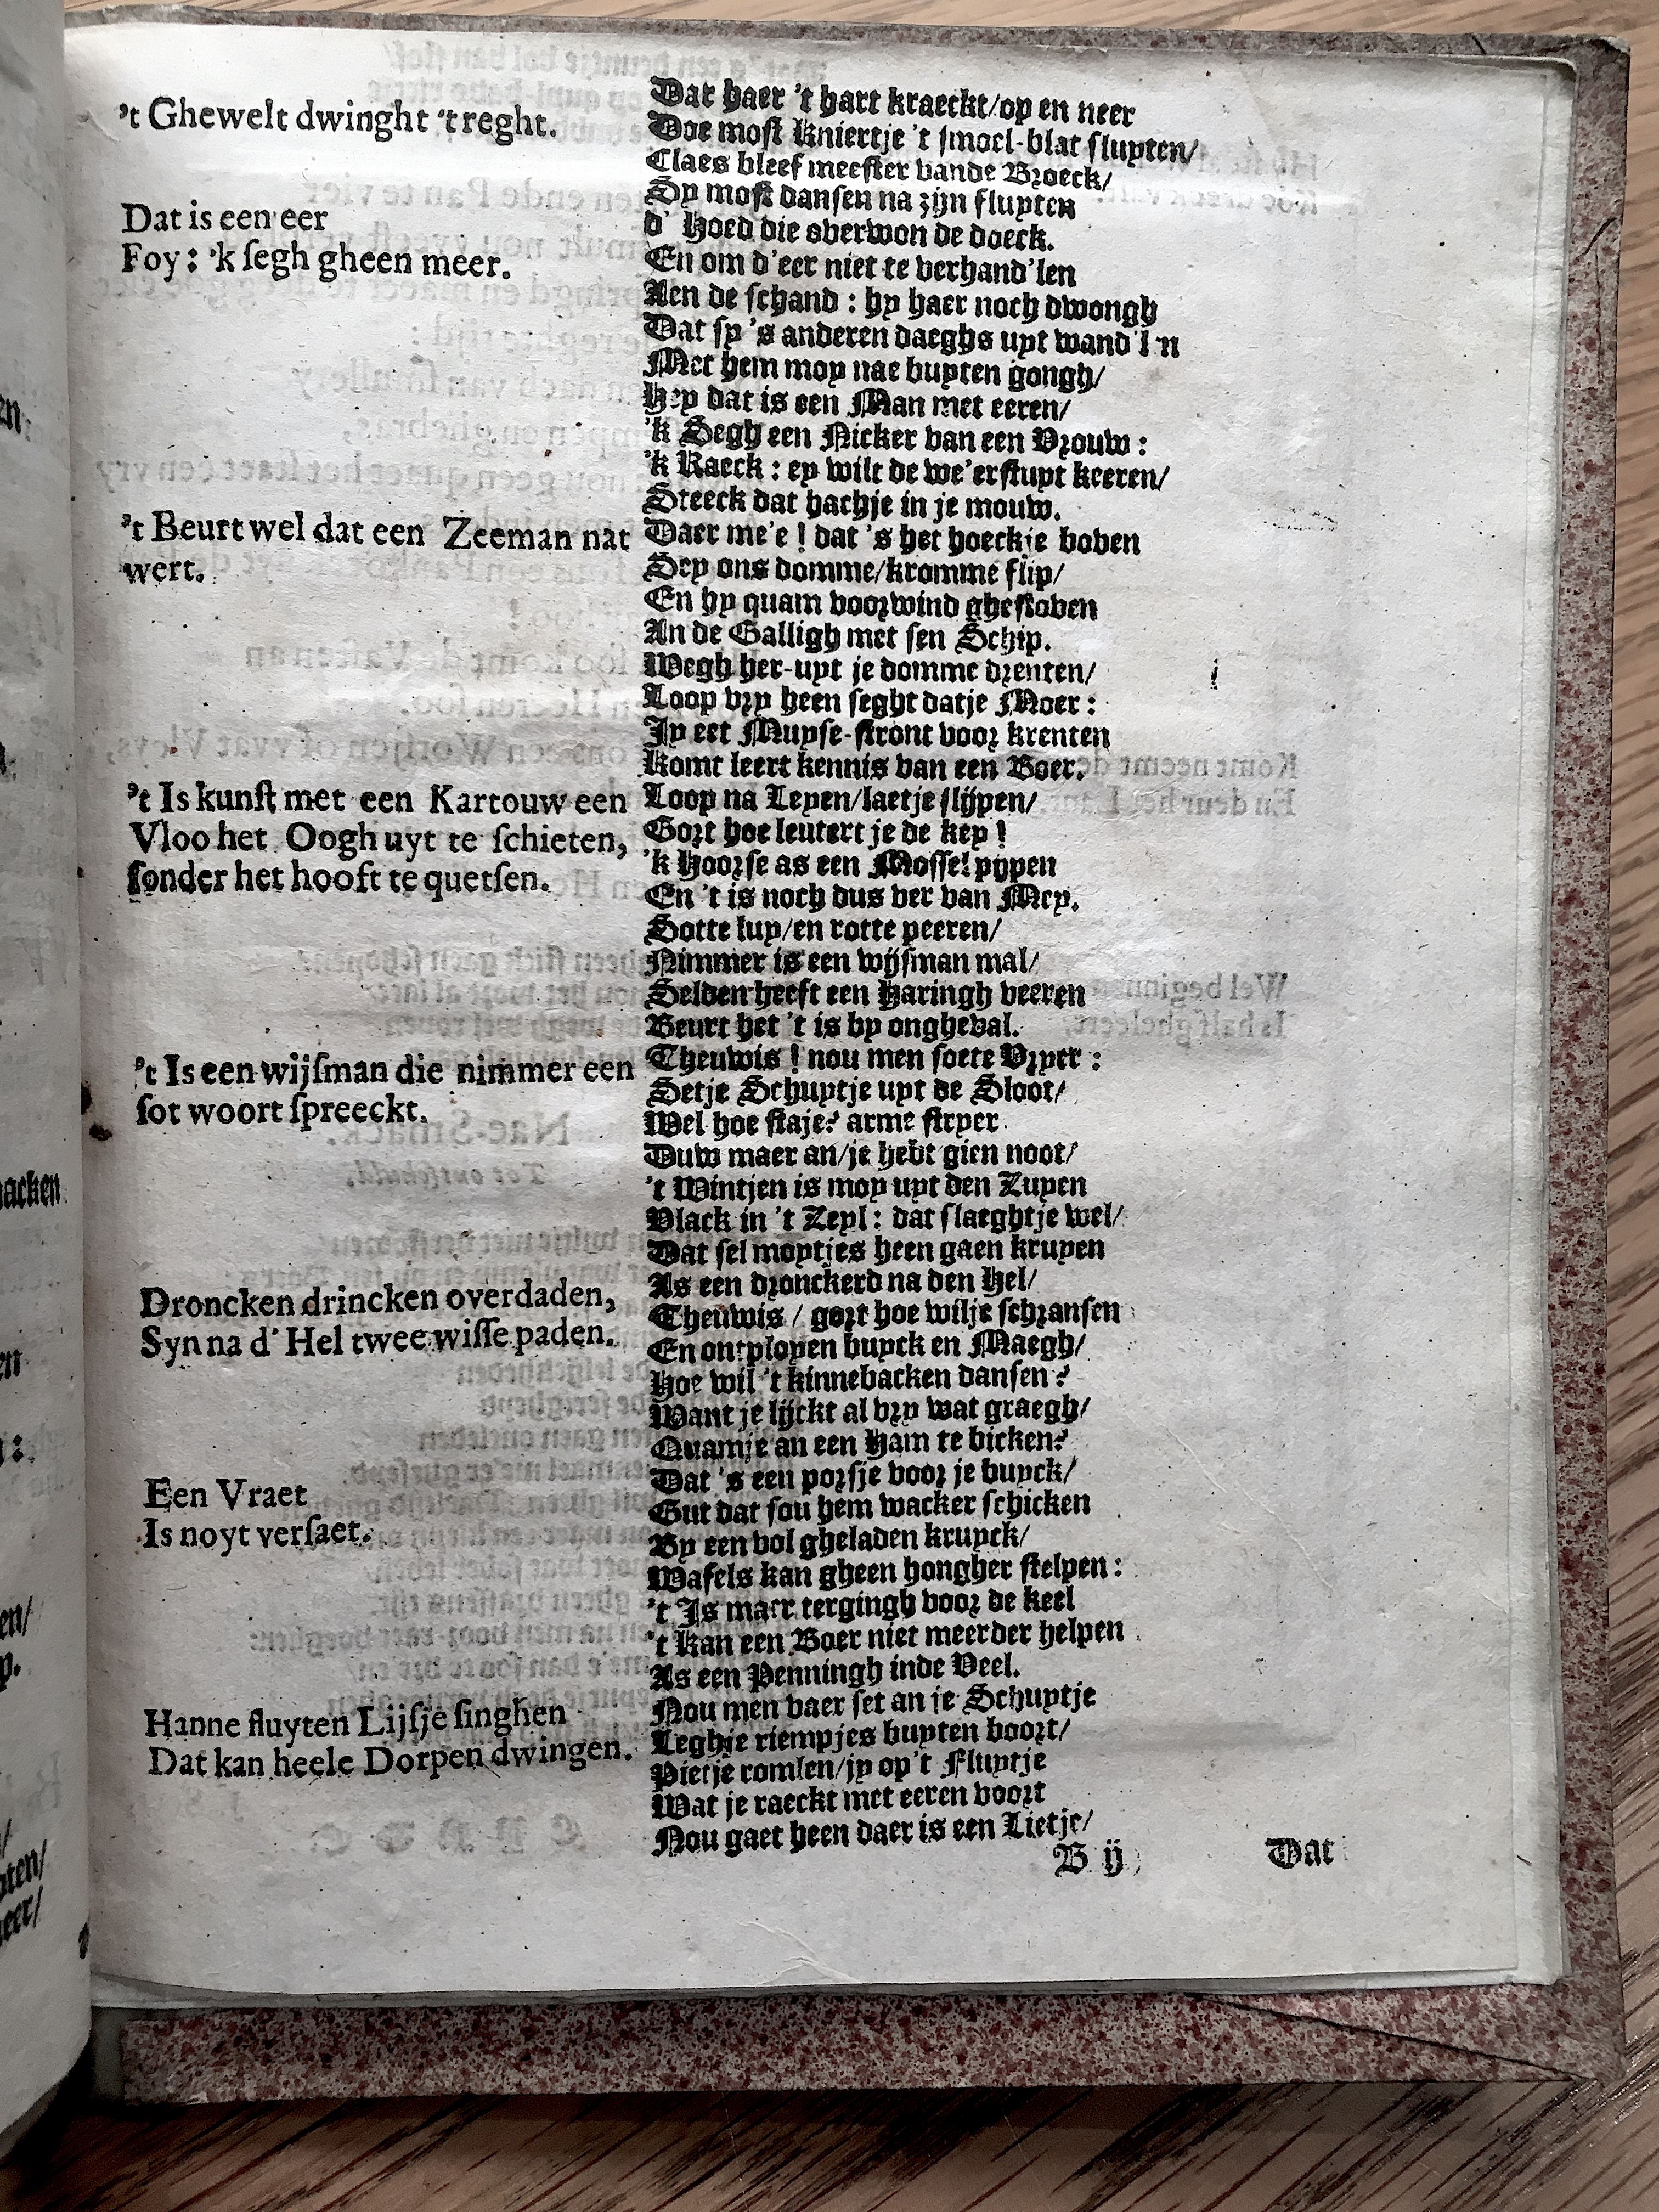 Dat haer 't hart kraeckt/op en neer
't Ghewelt dwinght 't reght.
Doe most Kniertje 't smoel-blat sluyten/
Claes bleef meester vande Broeck/
Sy most dansen na zijn fluyten
Dat is een eer
d' Hoed die overwon de doeck.
Foy: 'k segh gheen meer.
En om d'eer niet te verhand'len
Aen de schand: hy haer noch dwongh
Dat sy 's anderen daeghs uyt wand'l'n
Met hem moy nae buyten gongh/
Hey dat is een Man met eeren/
'k Segh een Nicker van een Vrouw:
'k Raeck: ey wilt de we'erstuyt keeren/
Steeck dat hachje in je mouw.
't Beurt wel dat een Zeeman nat
wert.
Daer me'e! dat 's het hoeckje boven
Sey ons domme/kromme flip/
En hy quam voorwind ghestoven
An de Galligh met sen Schip.
Wegh her-uyt je domme drenten/
Loop vry heen seght datje Moer:
Jy eet Muyse-stront voor krenten
Komt leert kennis van een Boer.
't Is kunst met een Kartouw een
Vloo het Oogh uyt te schieten,
sonder het hooft te quetsen.
Loop na Leyen/laetje slijpen/
Gort hoe leutert je de key!
'k Hoorse as een Mossel pypen
En 't is noch dus ver van Mey.
Sotte luy/en rotte peeren/
Nimmer is een wijsman mal/
Selden heeft een Haringh veeren
Beurt het 't is by ongheval.
't Is een wijsman die nimmer een
sot woort spreeckt.
Theuwis! nou men soete Vryer:
Setje Schuytje uyt de Sloot/
Wel hoe staje? arme stryer
Duw maer an/je hebt gien noot/
't Wintjen is moy uyt den Zuyen
Vlack in 't Zeyl: dat slaeghtje wel/
Dat sel moytjes heen gaen kruyen
As een dronckerd na den Hel/
Droncken drincken overdaden,
Syn na d' Hel twee wisse paden.
Theuwis/ gort hoe wilje schransen
En ontployen buyck en Maegh/
Hoe wil 't kinnebacken dansen?
Want je lijckt al vry wat graegh/
Quamje an een Ham te bicken?
Dat 's een porsje voor je buyck/
Een Vraet
Is noyt versaet.
Gut dat sou hem wacker schicken
By een vol gheladen kruyck/
Wafels kan gheen hongher stelpen:
't Is maer tergingh voor de keel
't Kan een Boer niet meerder helpen
As een Penningh inde Veel.
Hanne fluyten Lijsje singhen
Dat kan heele Dorpen dwingen.
Nou men vaer set an je Schuytje
Leghje riempjes buyten boort/
Pietje romlen/jy op't Fluytje
Wat je raeckt met eeren voort
Nou gaet heen daer is een Lietje/
B ij
Dat